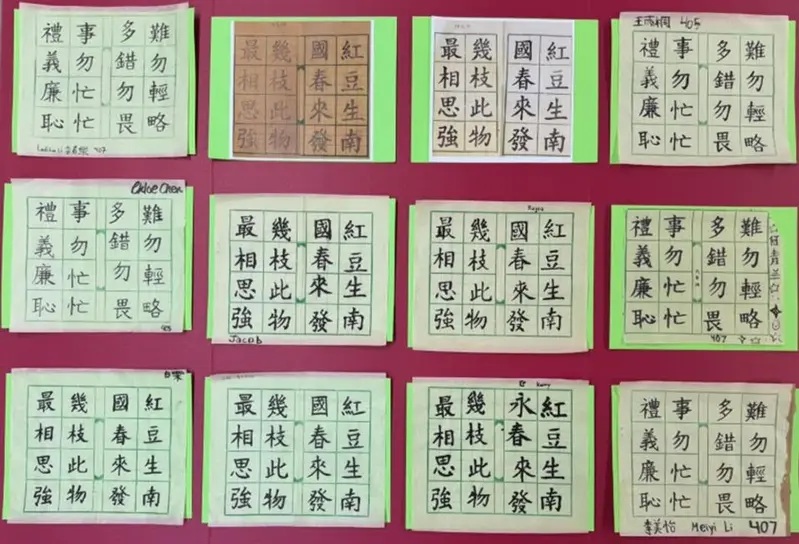 難勿輕略
多錯勿畏
事勿忙忙
禮義廉恥
407
紅豆生南
國春來發
幾枝此物
最相思強
紅豆生南
國春來發
幾枝此物
最相思強
王雨桐 405
難勿輕略
多錯勿畏
事勿忙忙
禮義廉恥
Chloe Chen
難勿輕略
多錯勿畏
事勿忙忙
禮義廉恥
紅豆生南
國春來發
幾枝此物
最相思強
Jacob
紅豆生南
國春來發
幾枝此物
最相思強
難勿輕略
多錯勿畏
事勿忙忙
禮義廉恥
407
紅豆生南
國春來發
幾枝此物
最相思強
紅豆生南
國春來發
幾枝此物
最相思強
紅豆生南
永春來發
幾枝此物
最相思強
難勿輕略
多錯勿畏
事勿忙忙
禮義廉恥
李美怡 Meiyi Li 407